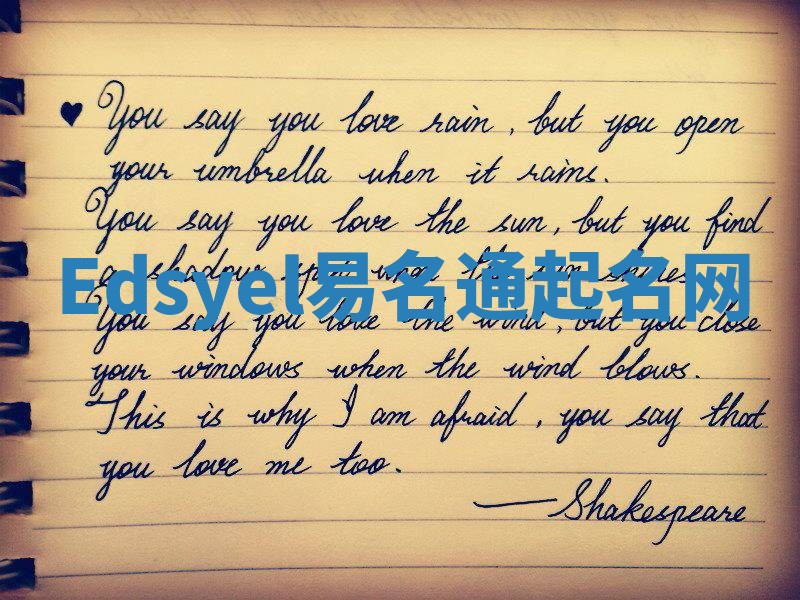 You say you love rain, but you open
your umbrella when it rains.
You say you love the sun, but you find
a shadow spot when the sun shines.
Edsyel易名通起名网
You say you love the wind, but you close
your windows when the wind blows.
This is why I am afraid, you say that
you love me too.
—Shakespeare